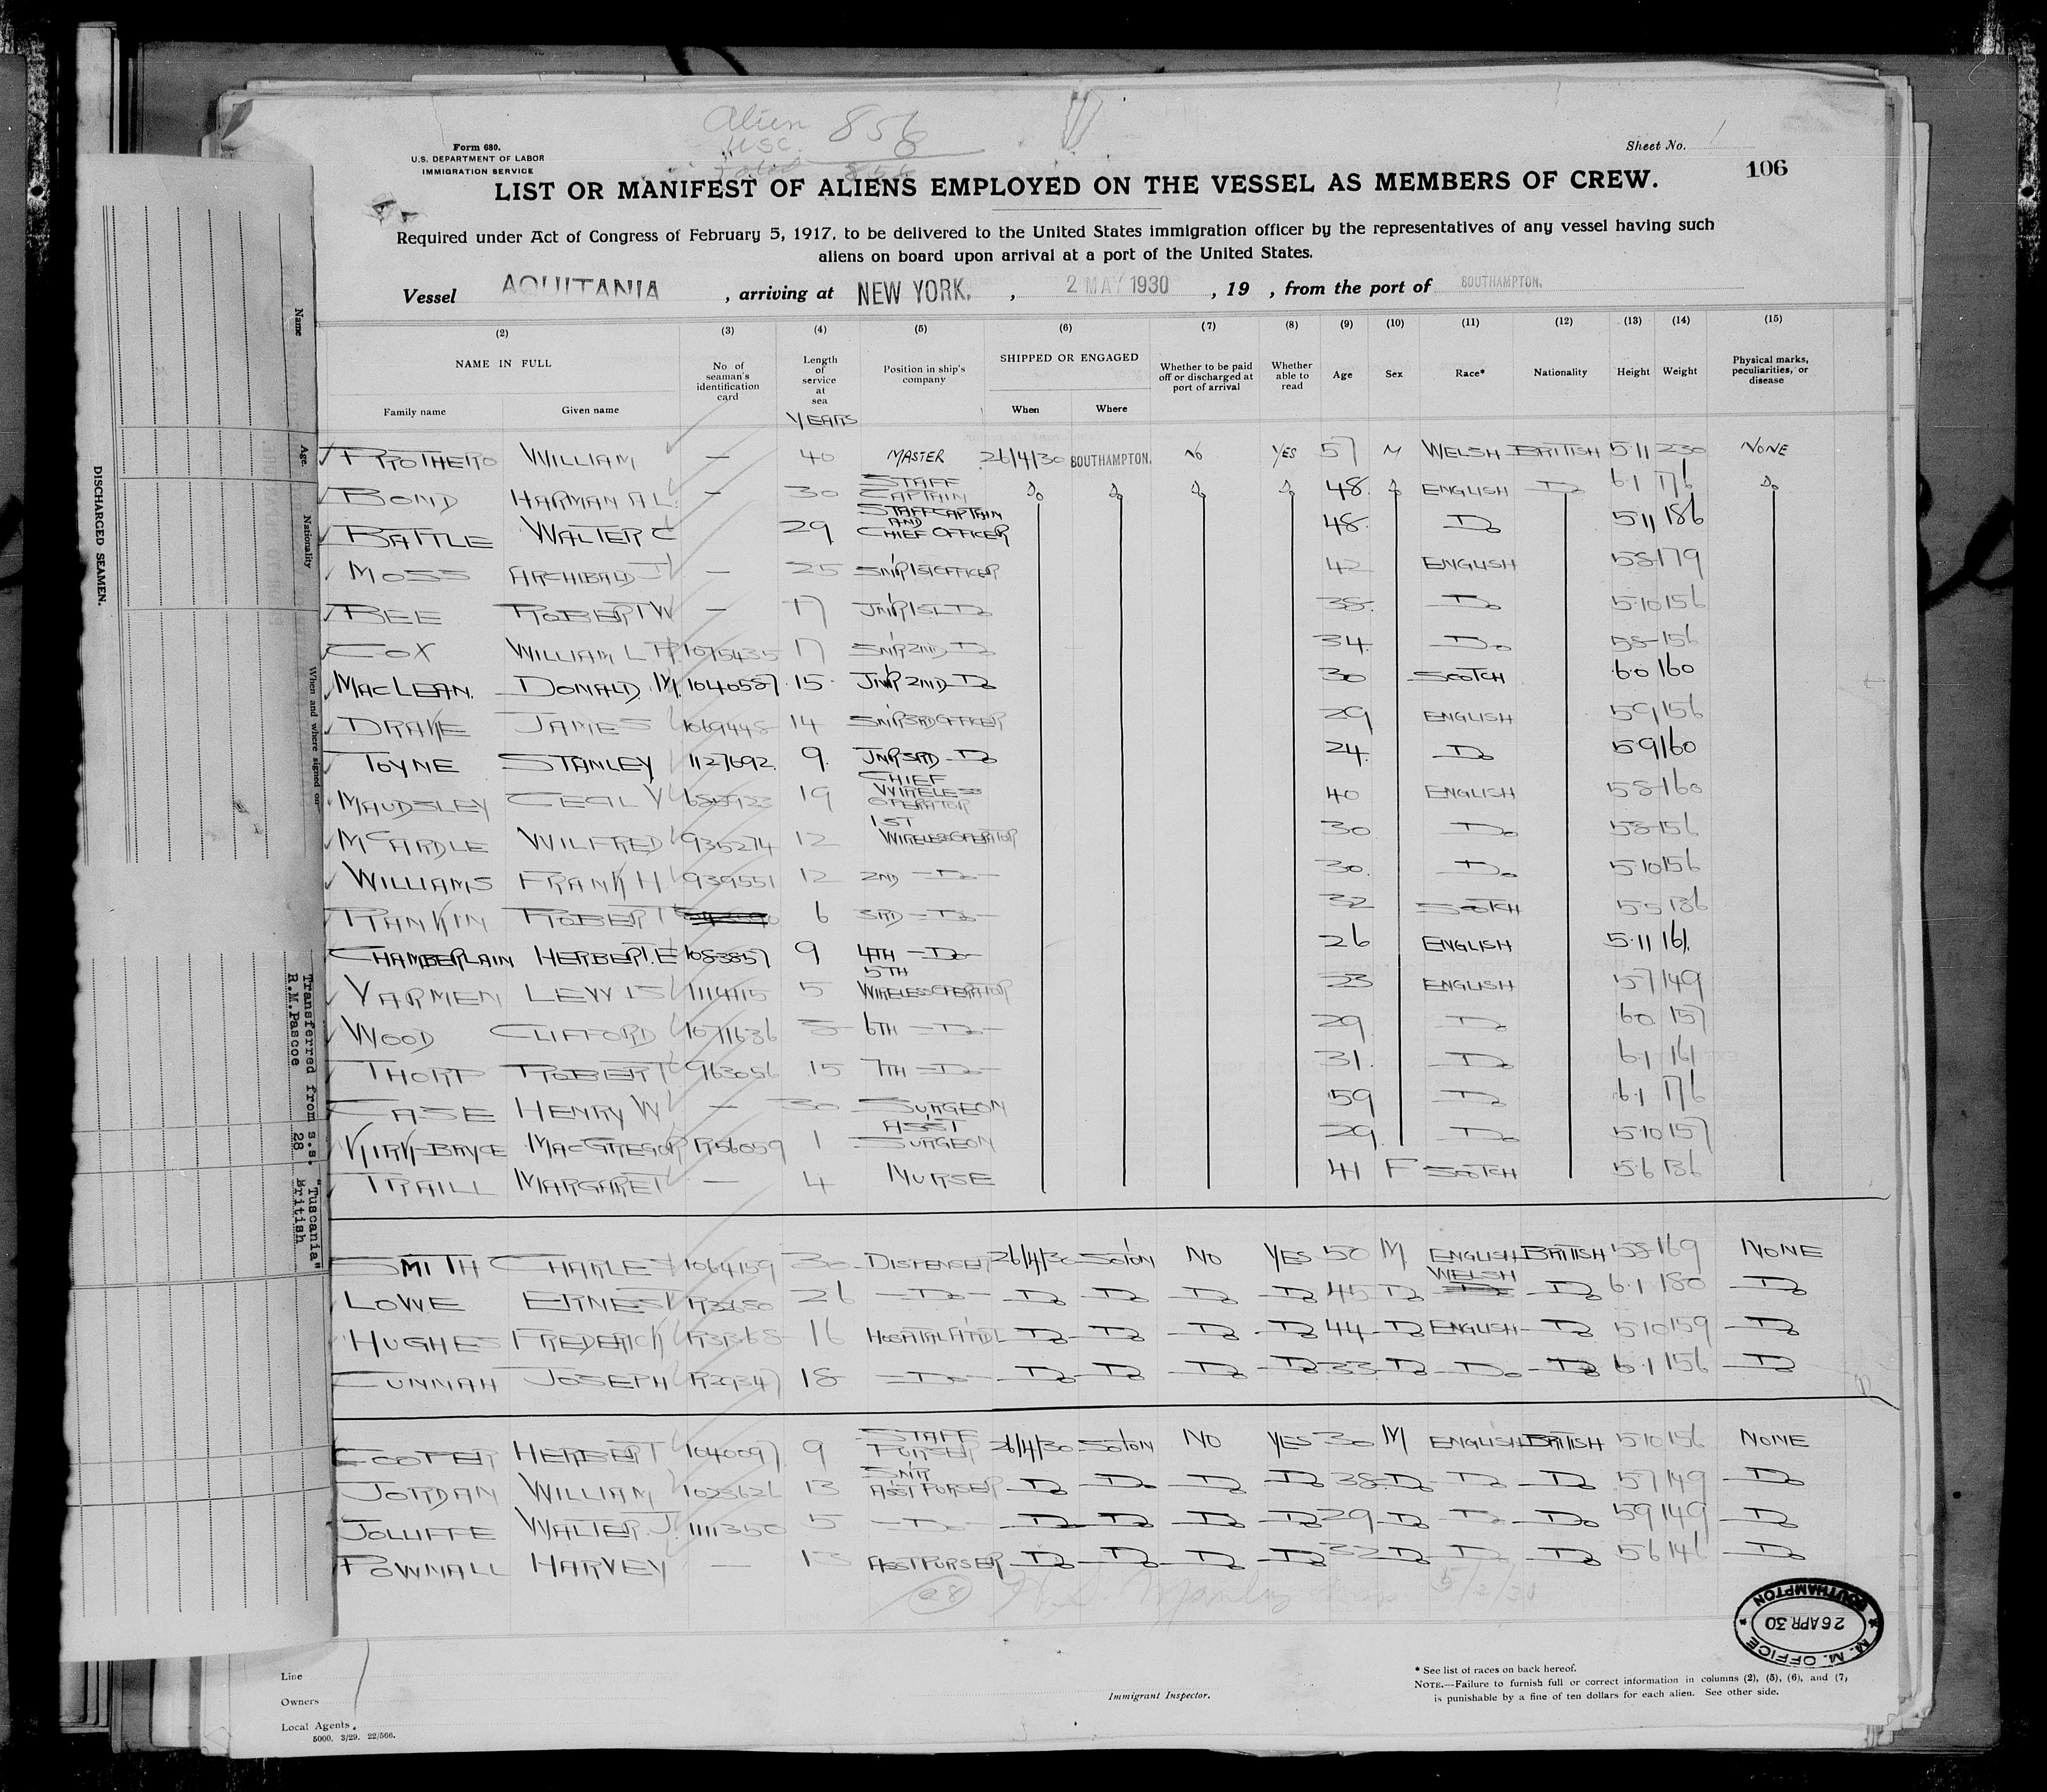 Alien 856
USC.
Total 856
Form 680.
U.S. DEPARTMENT OF LABOR
IMMIGRATION SERVICE
Sheet No. 1
106
LIST OR MANIFEST OF ALIENS EMPLOYED ON THE VESSEL AS MEMBERS OF CREW.
Required under Act of Congress of February 5, 1917, to be delivered to the United States immigration officer by the representatives of any vessel having such
aliens on board upon arrival at a port of the United States.
Vessel AQUITANIA , arriving at NEW YORK. , 2 MAY 1930 , 19 , from the port of SOUTHAMPTON.
(2) (3) (4) (5) (6) (7) (8) (9) (10) (11) (12) (13) (14) (15)
NAME IN FULL
Family name Given name
No of seaman's identification card
Length of service at sea
YEARS
Position in ship's company
SHIPPED OR ENGAGED
When Where
Whether to be paid off or discharged at port of arrival
Whether able to read
Age Sex Race* Nationality Height Weight
Physical marks, peculiarities, or disease
PROTHERO WILLIAM — 40 MASTER 26/4/30 SOUTHAMPTON. NO YES 57 M WELSH BRITISH 5·11 230 NONE
BOND HARMAN A L — 30 STAFF CAPTAIN Do Do Do Do 48 Do ENGLISH Do 6·1 176 Do
BATTLE WALTER C 29 STAFF CAPTAIN AND CHIEF OFFICER 48 Do 5·11 186
MOSS ARCHIBALD J — 25 SNR 1ST OFFICER 42 ENGLISH 5·8 179
BEE ROBERT W — 17 JNR 1ST Do 38 Do 5·10 156
COX WILLIAM L 1075435 17 SNR 2ND Do 34 Do 5·8 156
MACLEAN. DONALD. M. 1040587 15 JNR 2ND Do 30 SCOTCH 6·0 160
DRAKE JAMES 1069448 14 SNR 3RD OFFICER 29 ENGLISH 5·9 156
TOYNE STANLEY 1127692 9 JNR 3RD Do 24 Do 5·9 160
MAUDSLEY CECIL V 19 CHIEF WIRELESS OPERATOR 40 ENGLISH 5·8 160
MCARDLE WILFRED 935274 12 1ST WIRELESS OPERATOR 30 Do 5·8 156
WILLIAMS FRANK H 939551 12 2ND Do 30 Do 5·10 156
RANKIN ROBERT 6 3RD Do 32 SCOTCH 5·5 136
CHAMBERLAIN HERBERT. E 1083857 9 4TH Do 26 ENGLISH 5·11 161
YARMEN LEWIS 1114115 5 5TH WIRELESS OPERATOR 23 ENGLISH 5·7 149
WOOD CLIFFORD 1071636 6TH Do 29 Do 6·0 157
THORP ROBERT 963056 15 7TH Do 31 Do 6·1 161
CASE HENRY W — 30 SURGEON 59 Do 6·1 176
KIRK-BRYCE MACGREGOR R56059 1 ASST SURGEON 29 Do 5·10 157
TRAILL MARGARET — 4 NURSE 41 F SCOTCH 5·6 136
SMITH CHARLES 1064159 30 DISPENSER 26/4/30 SO'TON NO YES 50 M ENGLISH BRITISH 5·8 169 NONE
LOWE ERNEST 26 Do Do Do Do Do 45 Do WELSH Do 6·1 180 Do
HUGHES FREDERICK 16 HOSPITAL ATTDT Do Do Do Do 44 Do ENGLISH Do 5·10 159 Do
CUNNAH JOSEPH R29347 18 Do Do Do Do Do 33 Do Do Do 6·1 156 Do
COOPER HERBERT 1040097 9 STAFF PURSER 26/4/30 SO'TON NO YES 30 M ENGLISH BRITISH 5·10 156 NONE
JORDAN WILLIAM 1023626 13 SNR ASST PURSER Do Do Do Do 38 Do Do Do 5·7 149 Do
JOLLIFFE WALTER. J. 1111350 5 Do Do Do Do Do 29 Do Do Do 5·9 149 Do
POWNALL HARVEY — 13 ASST PURSER Do Do Do Do 32 Do Do Do 5·6 146 Do
28 5/2/30
M. M. OFFICE
26 APR 30
SOUTHAMPTON
Line
Owners
Local Agents
5000. 3/29. 22/566.
Immigrant Inspector.
* See list of races on back hereof.
NOTE.—Failure to furnish full or correct information in columns (2), (5), (6), and (7,
is punishable by a fine of ten dollars for each alien. See other side.
DISCHARGED SEAMEN.
Name
Age
Nationality
When and where signed on
Transferred from s.s. "Tuscania"
R.M.Pascoe 28 British